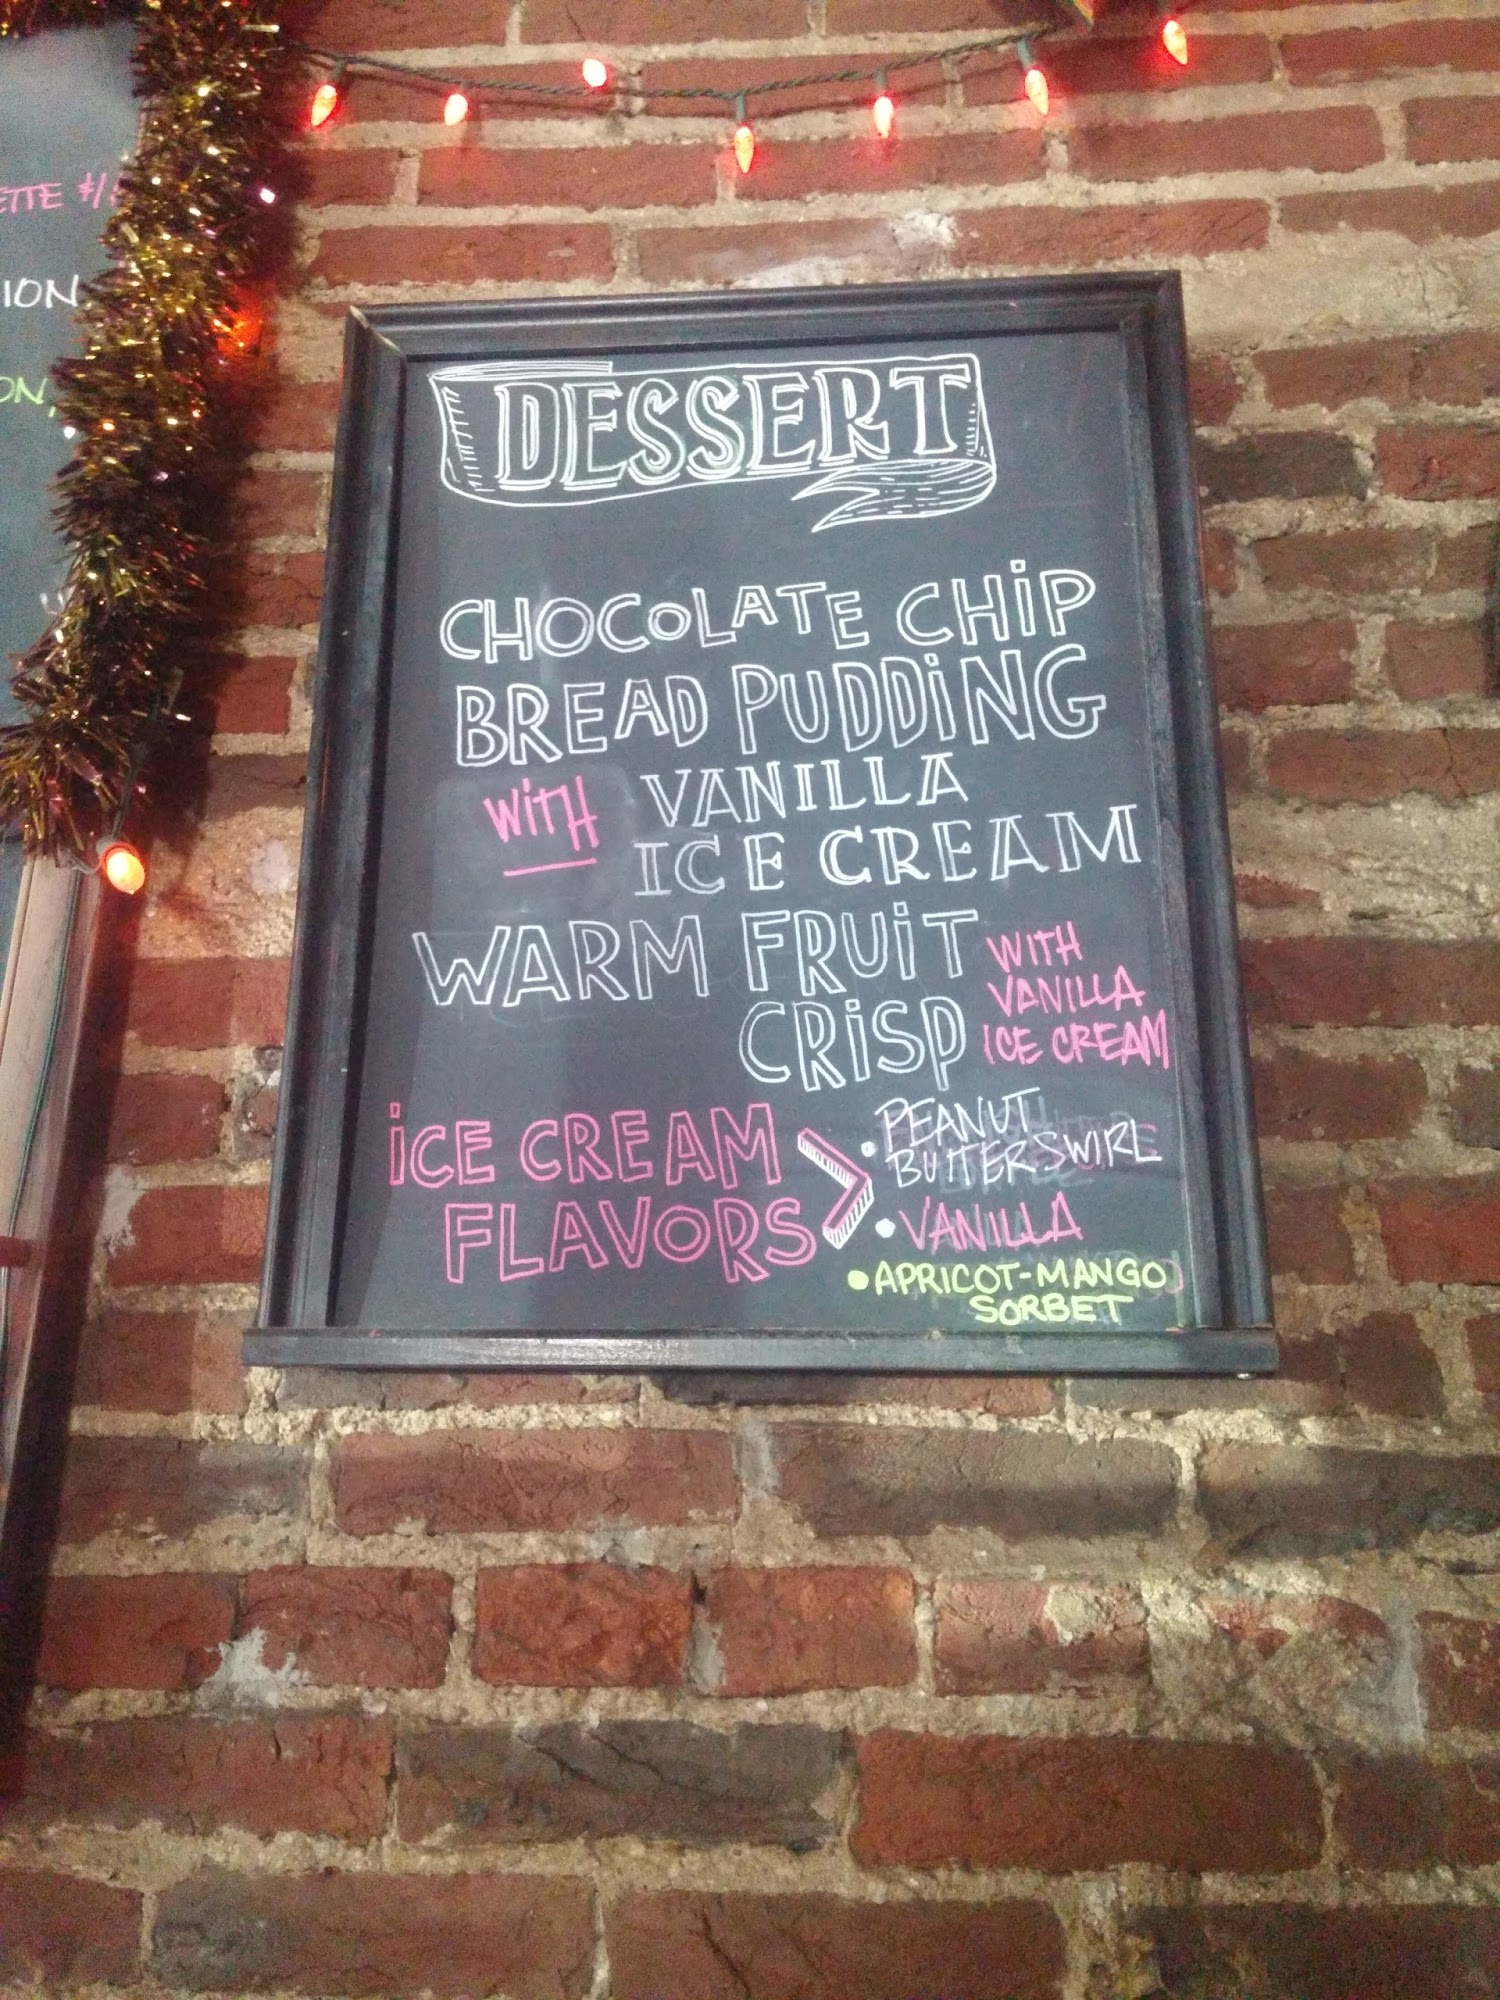 ETTE
ION
ON,
DESSERT
CHOCOLATE CHIP
BREAD PUDDING
WITH VANILLA
ICE CREAM
WARM FRUIT
CRISP
WITH
VANILLA
ICE CREAM
ICE CREAM
FLAVORS
• PEANUT
BUTTER SWIRL
• VANILLA
• APRICOT-MANGO
SORBET